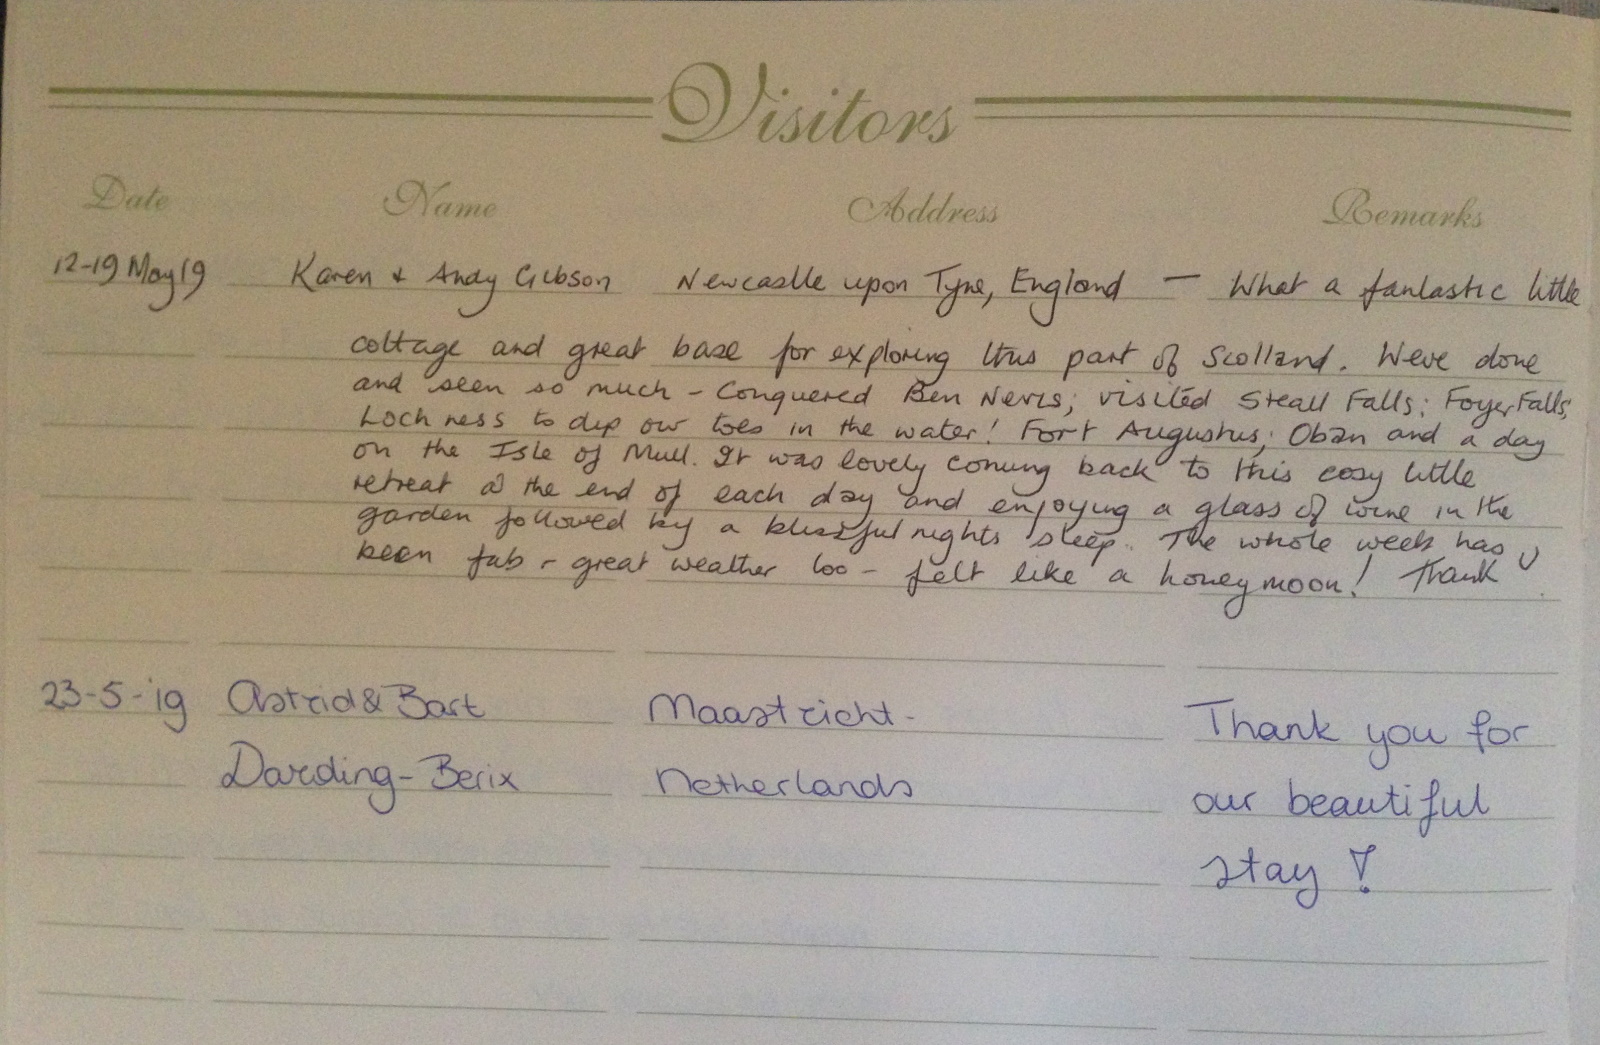 Visitors
Date Name Address Remarks
12-19 May 19 Karen + Andy Gibson Newcastle upon Tyne, England — What a fantastic little
cottage and great base for exploring this part of Scotland. Weve done
and seen so much - Conquered Ben Nevis; visited Steall Falls; Foyer Falls;
Loch ness to dip our toes in the water! Fort Augustus; Oban and a day
on the Isle of Mull. It was lovely coming back to this cosy little
retreat at the end of each day and enjoying a glass of wine in the
garden followed by a blissful nights sleep. The whole week has
been fab - great weather too - felt like a honeymoon! Thank U
23-5-19 Astrid & Bart Maastricht- Thank you for
Darding-Berix Netherlands our beautiful
stay !